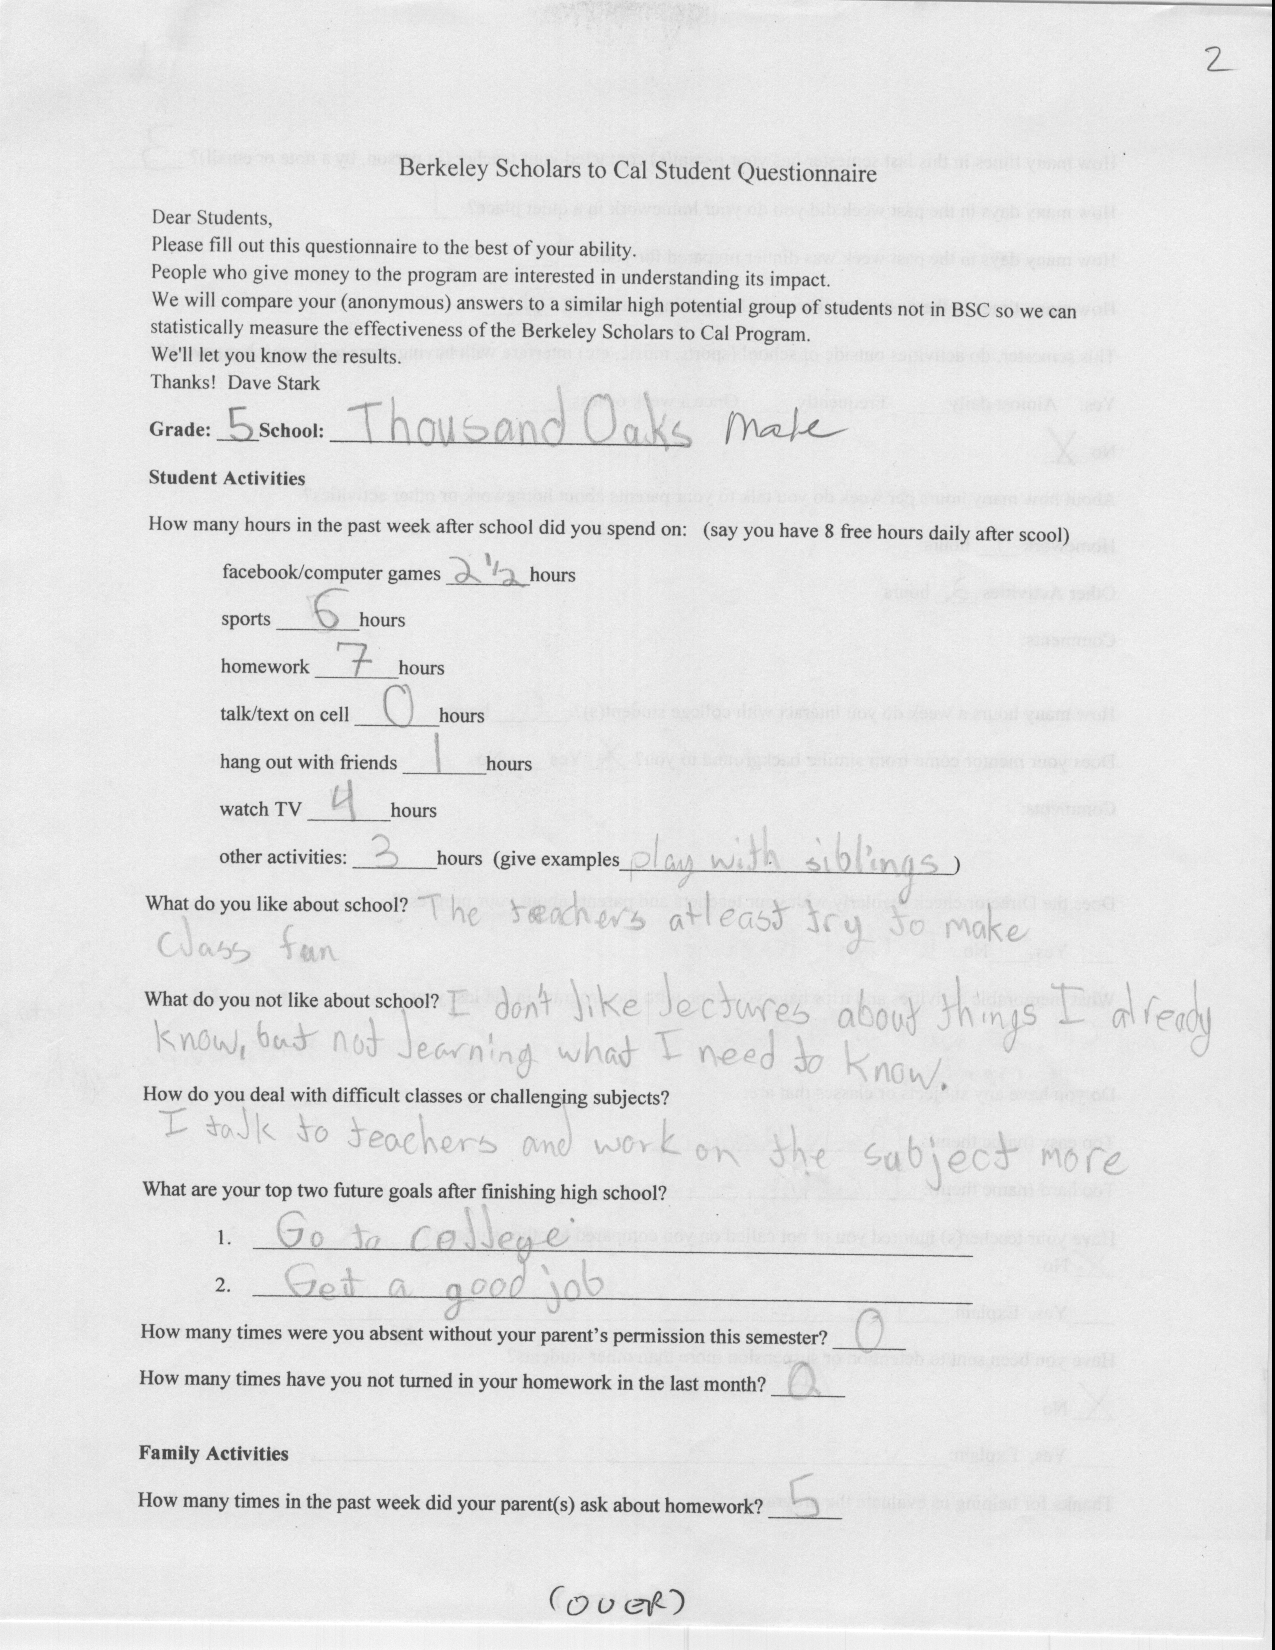 2
Berkeley Scholars to Cal Student Questionnaire
Dear Students,
Please fill out this questionnaire to the best of your ability.
People who give money to the program are interested in understanding its impact.
We will compare your (anonymous) answers to a similar high potential group of students not in BSC so we can
statistically measure the effectiveness of the Berkeley Scholars to Cal Program.
We'll let you know the results.
Thanks! Dave Stark
Grade: 5 School: Thousand Oaks Male
Student Activities
How many hours in the past week after school did you spend on: (say you have 8 free hours daily after scool)
facebook/computer games 2 1/2 hours
sports 6 hours
homework 7 hours
talk/text on cell 0 hours
hang out with friends 1 hours
watch TV 4 hours
other activities: 3 hours (give examples play with siblings)
What do you like about school? The teachers atleast try to make
class fun
What do you not like about school? I don't like lectures about things I already
know, but not learning what I need to know.
How do you deal with difficult classes or challenging subjects?
I talk to teachers and work on the subject more
What are your top two future goals after finishing high school?
1. Go to college
2. Get a good job
How many times were you absent without your parent's permission this semester? 0
How many times have you not turned in your homework in the last month? 0
Family Activities
How many times in the past week did your parent(s) ask about homework? 5
(OVER)